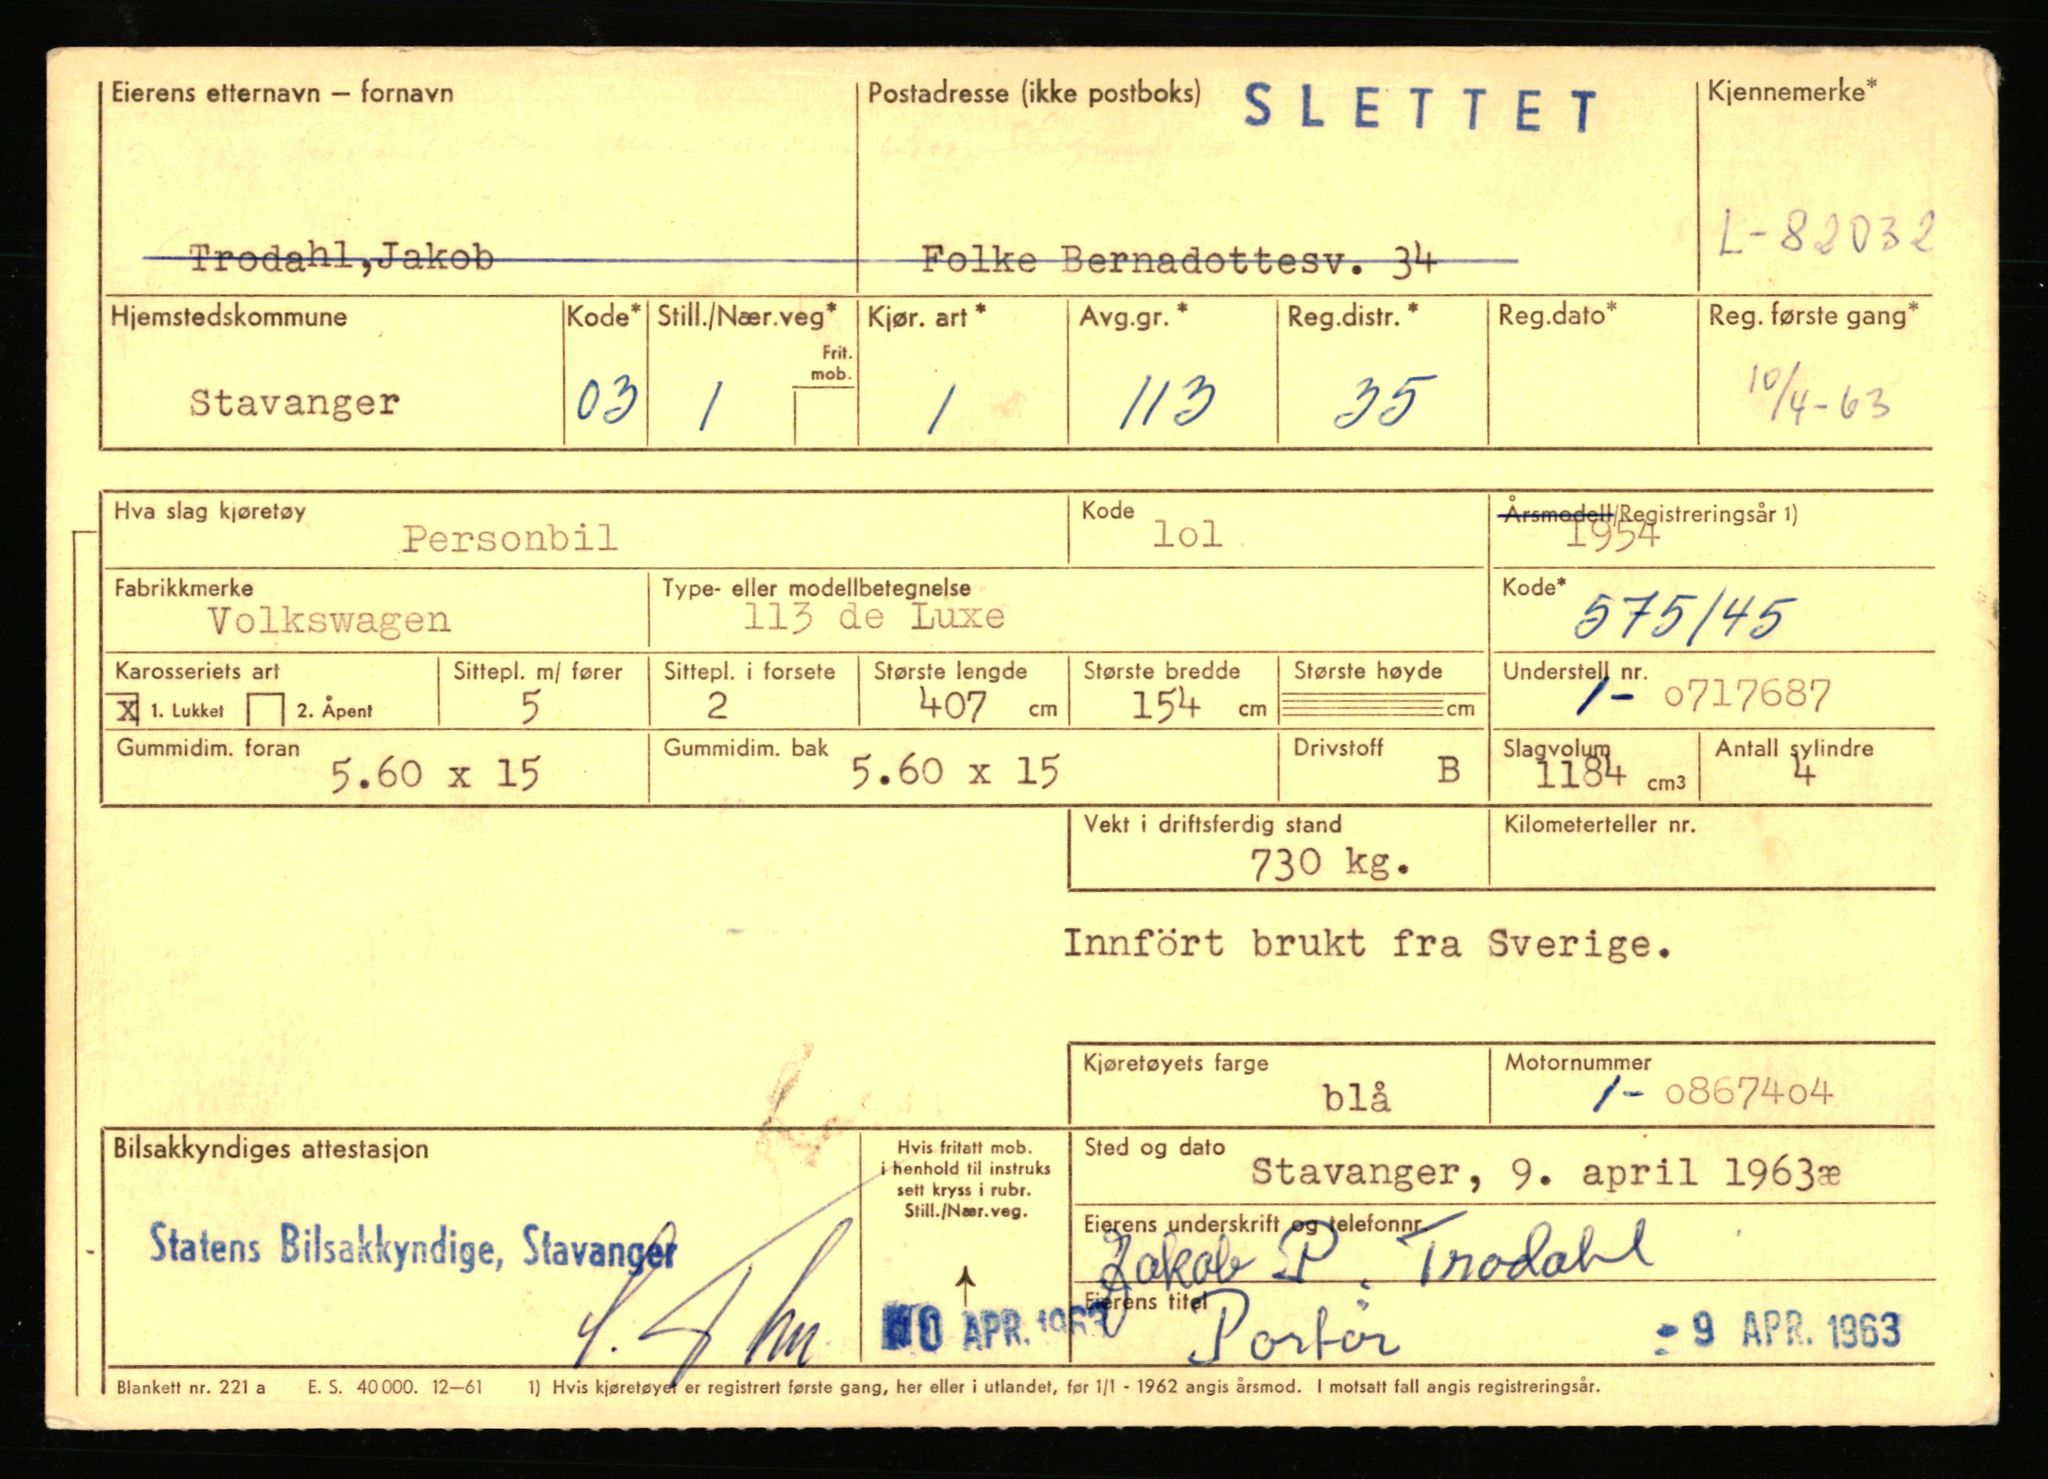 Eierens etternavn – fornavn
Postadresse (ikke postboks)
SLETTET
Kjennemerke*
Trodahl,Jakob
Folke Bernadottesv. 34
L-82032
Hjemstedskommune
Kode*
Still./Nær.veg*
Frit. mob.
Kjør. art*
Avg.gr.*
Reg.distr.*
Reg.dato*
Reg. første gang*
Stavanger
03
1
1
113
35
10/4-63
Hva slag kjøretøy
Personbil
Kode
lol
Årsmodell/Registreringsår 1)
1954
Fabrikkmerke
Volkswagen
Type- eller modellbetegnelse
113 de Luxe
Kode*
575/45
Karosseriets art
X 1. Lukket 2. Åpent
Sittepl. m/ fører
5
Sittepl. i forsete
2
Største lengde
407 cm
Største bredde
154 cm
Største høyde
cm
Understell nr.
1- o717687
Gummidim. foran
5.60 x 15
Gummidim. bak
5.60 x 15
Drivstoff
B
Slagvolum
1184 cm3
Antall sylindre
4
Vekt i driftsferdig stand
730 kg.
Kilometerteller nr.
Innfört brukt fra Sverige.
Kjøretøyets farge
blå
Motornummer
1- o8674o4
Bilsakkyndiges attestasjon
Statens Bilsakkyndige, Stavanger
Hvis fritatt mob.
i henhold til instruks
sett kryss i rubr.
Still./Nær.veg.
10 APR. 1963
Sted og dato
Stavanger, 9. april 1963æ
Eierens underskrift og telefonnr.
Jakob P. Trodahl
Eierens titel
Portör
- 9 APR. 1963
Blankett nr. 221 a E. S. 40 000. 12–61 1) Hvis kjøretøyet er registrert første gang, her eller i utlandet, før 1/1 - 1962 angis årsmod. I motsatt fall angis registreringsår.